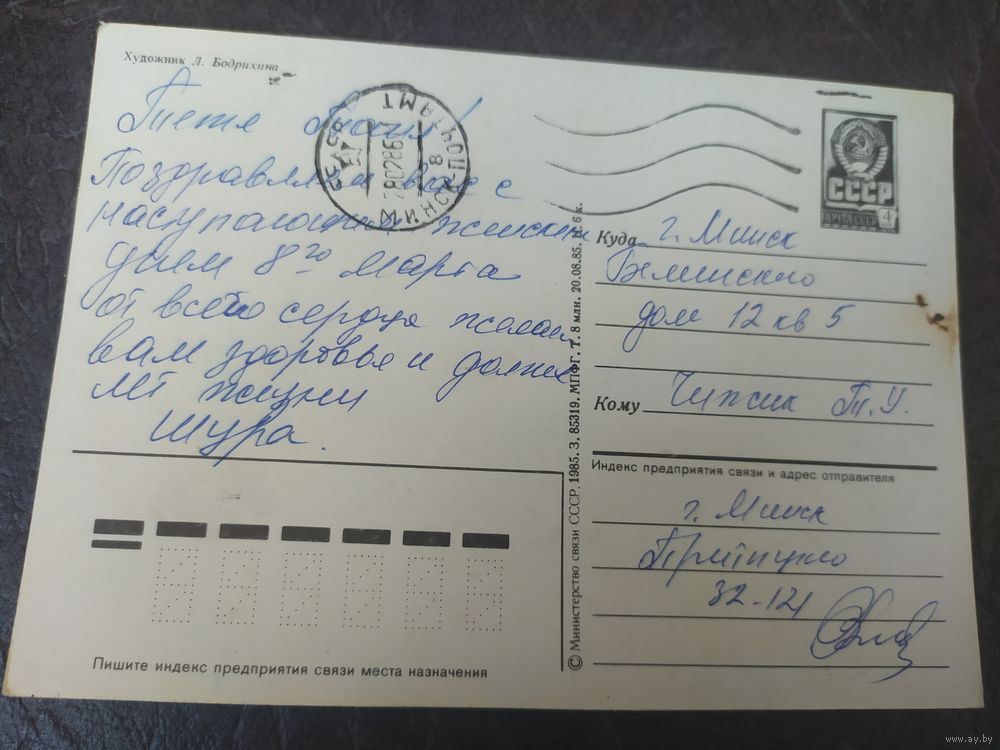 Художник Л. Бодрихина
Тетя
Поздравляем вас с
наступающим женским
днем 8го марта
от всего сердца желаем
вам здоровья и долгих
лет жизни
Шура.
МИНСК ПОЧТАМТ
280286
СССР
ПОЧТА СССР 4
Куда г. Минск
Белинского
дом 12 кв 5
Кому Чижик Т.У.
Индекс предприятия связи и адрес отправителя
г. Минск
Притыцкого
32-121
© Министерство связи СССР, 1985. З. 85319. МПФГ. Т. 8 млн. 20.08.85. Ц. 6 к.
Пишите индекс предприятия связи места назначения
www.ay.by